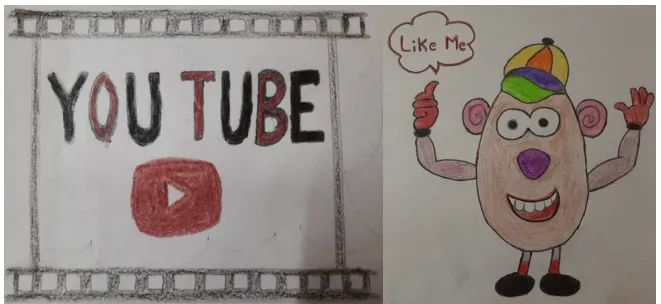 YOU TUBE
Like Me